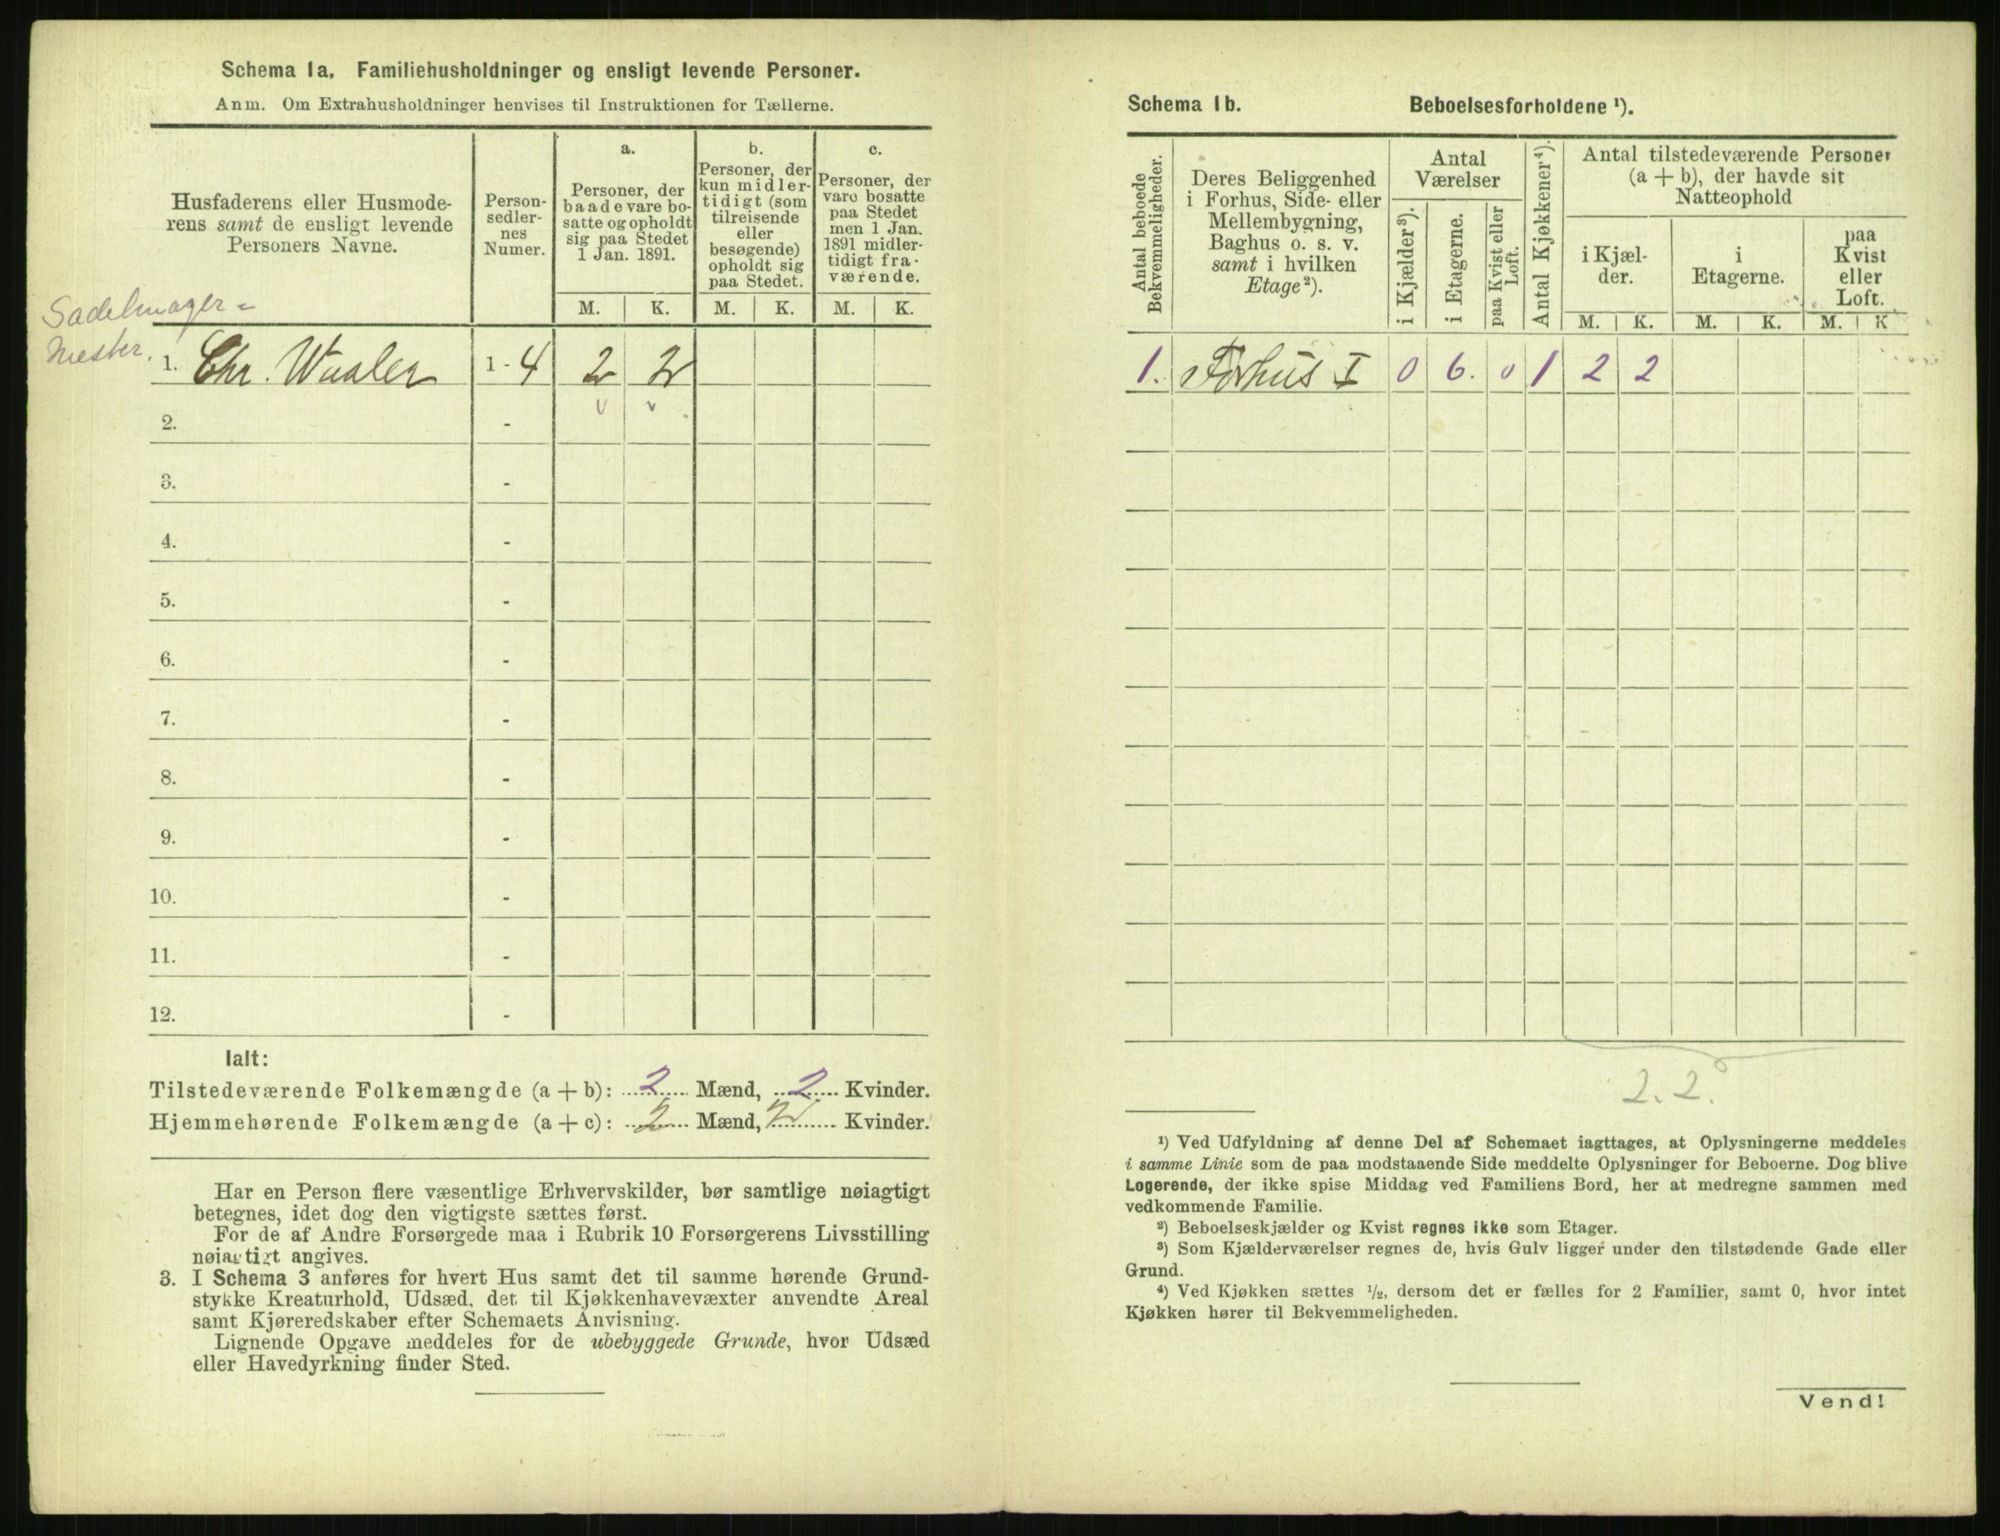 Schema 1a. Familiehusholdninger og ensligt levende Personer.
Anm. Om Extrahusholdninger henvises til Instruktionen for Tællerne.
Husfaderens eller Husmode-
rens samt de ensligt levende
Personers Navne.
Person-
sedler-
nes
Numer.
a.
Personer, der
baade vare bo-
satte og opholdt
sig paa Stedet
1 Jan. 1891.
b.
Personer, der
kun midler-
tidigt (som
tilreisende
eller
besøgende)
opholdt sig
paa Stedet.
c.
Personer, der
vare bosatte
paa Stedet
men 1 Jan.
1891 midler-
tidigt fra-
værende.
M. K. M. K. M. K.
Sadelmager-
mester.
1. Chr. Waaler 1 - 4 2 2
2. -
3. -
4. -
5. -
6. -
7. -
8. -
9. -
10. -
11. -
12. -
Ialt:
Tilstedeværende Folkemængde (a + b): 2 Mænd, 2 Kvinder.
Hjemmehørende Folkemængde (a + c): 2 Mænd, 2 Kvinder.
Har en Person flere væsentlige Erhvervskilder, bør samtlige nøiagtigt
betegnes, idet dog den vigtigste sættes først.
For de af Andre Forsørgede maa i Rubrik 10 Forsørgerens Livsstilling
nøiagtigt angives.
3. I Schema 3 anføres for hvert Hus samt det til samme hørende Grund-
stykke Kreaturhold, Udsæd, det til Kjøkkenhavevæxter anvendte Areal
samt Kjøreredskaber efter Schemaets Anvisning.
Lignende Opgave meddeles for de ubebyggede Grunde, hvor Udsæd
eller Havedyrkning finder Sted.
Schema 1b. Beboelsesforholdene ¹).
Antal beboede
Bekvemmeligheder.
Deres Beliggenhed
i Forhus, Side- eller
Mellembygning,
Baghus o. s. v.
samt i hvilken
Etage ²).
Antal
Værelser
i Kjælder ³).
i Etagerne.
paa Kvist eller
Loft.
Antal Kjøkkener ⁴).
Antal tilstedeværende Personer
(a + b), der havde sit
Natteophold
i Kjæl-
der.
i
Etagerne.
paa
Kvist
eller
Loft.
M. K. M. K. M. K
1. Forhus I 0 6. 0 1 2 2
2. 2.
¹) Ved Udfyldning af denne Del af Schemaet iagttages, at Oplysningerne meddeles
i samme Linie som de paa modstaaende Side meddelte Oplysninger for Beboerne. Dog blive
Logerende, der ikke spise Middag ved Familiens Bord, her at medregne sammen med
vedkommende Familie.
²) Beboelseskjælder og Kvist regnes ikke som Etager.
³) Som Kjælderværelser regnes de, hvis Gulv ligger under den tilstødende Gade eller
Grund.
⁴) Ved Kjøkken sættes ½, dersom det er fælles for 2 Familier, samt 0, hvor intet
Kjøkken hører til Bekvemmeligheden.
Vend!